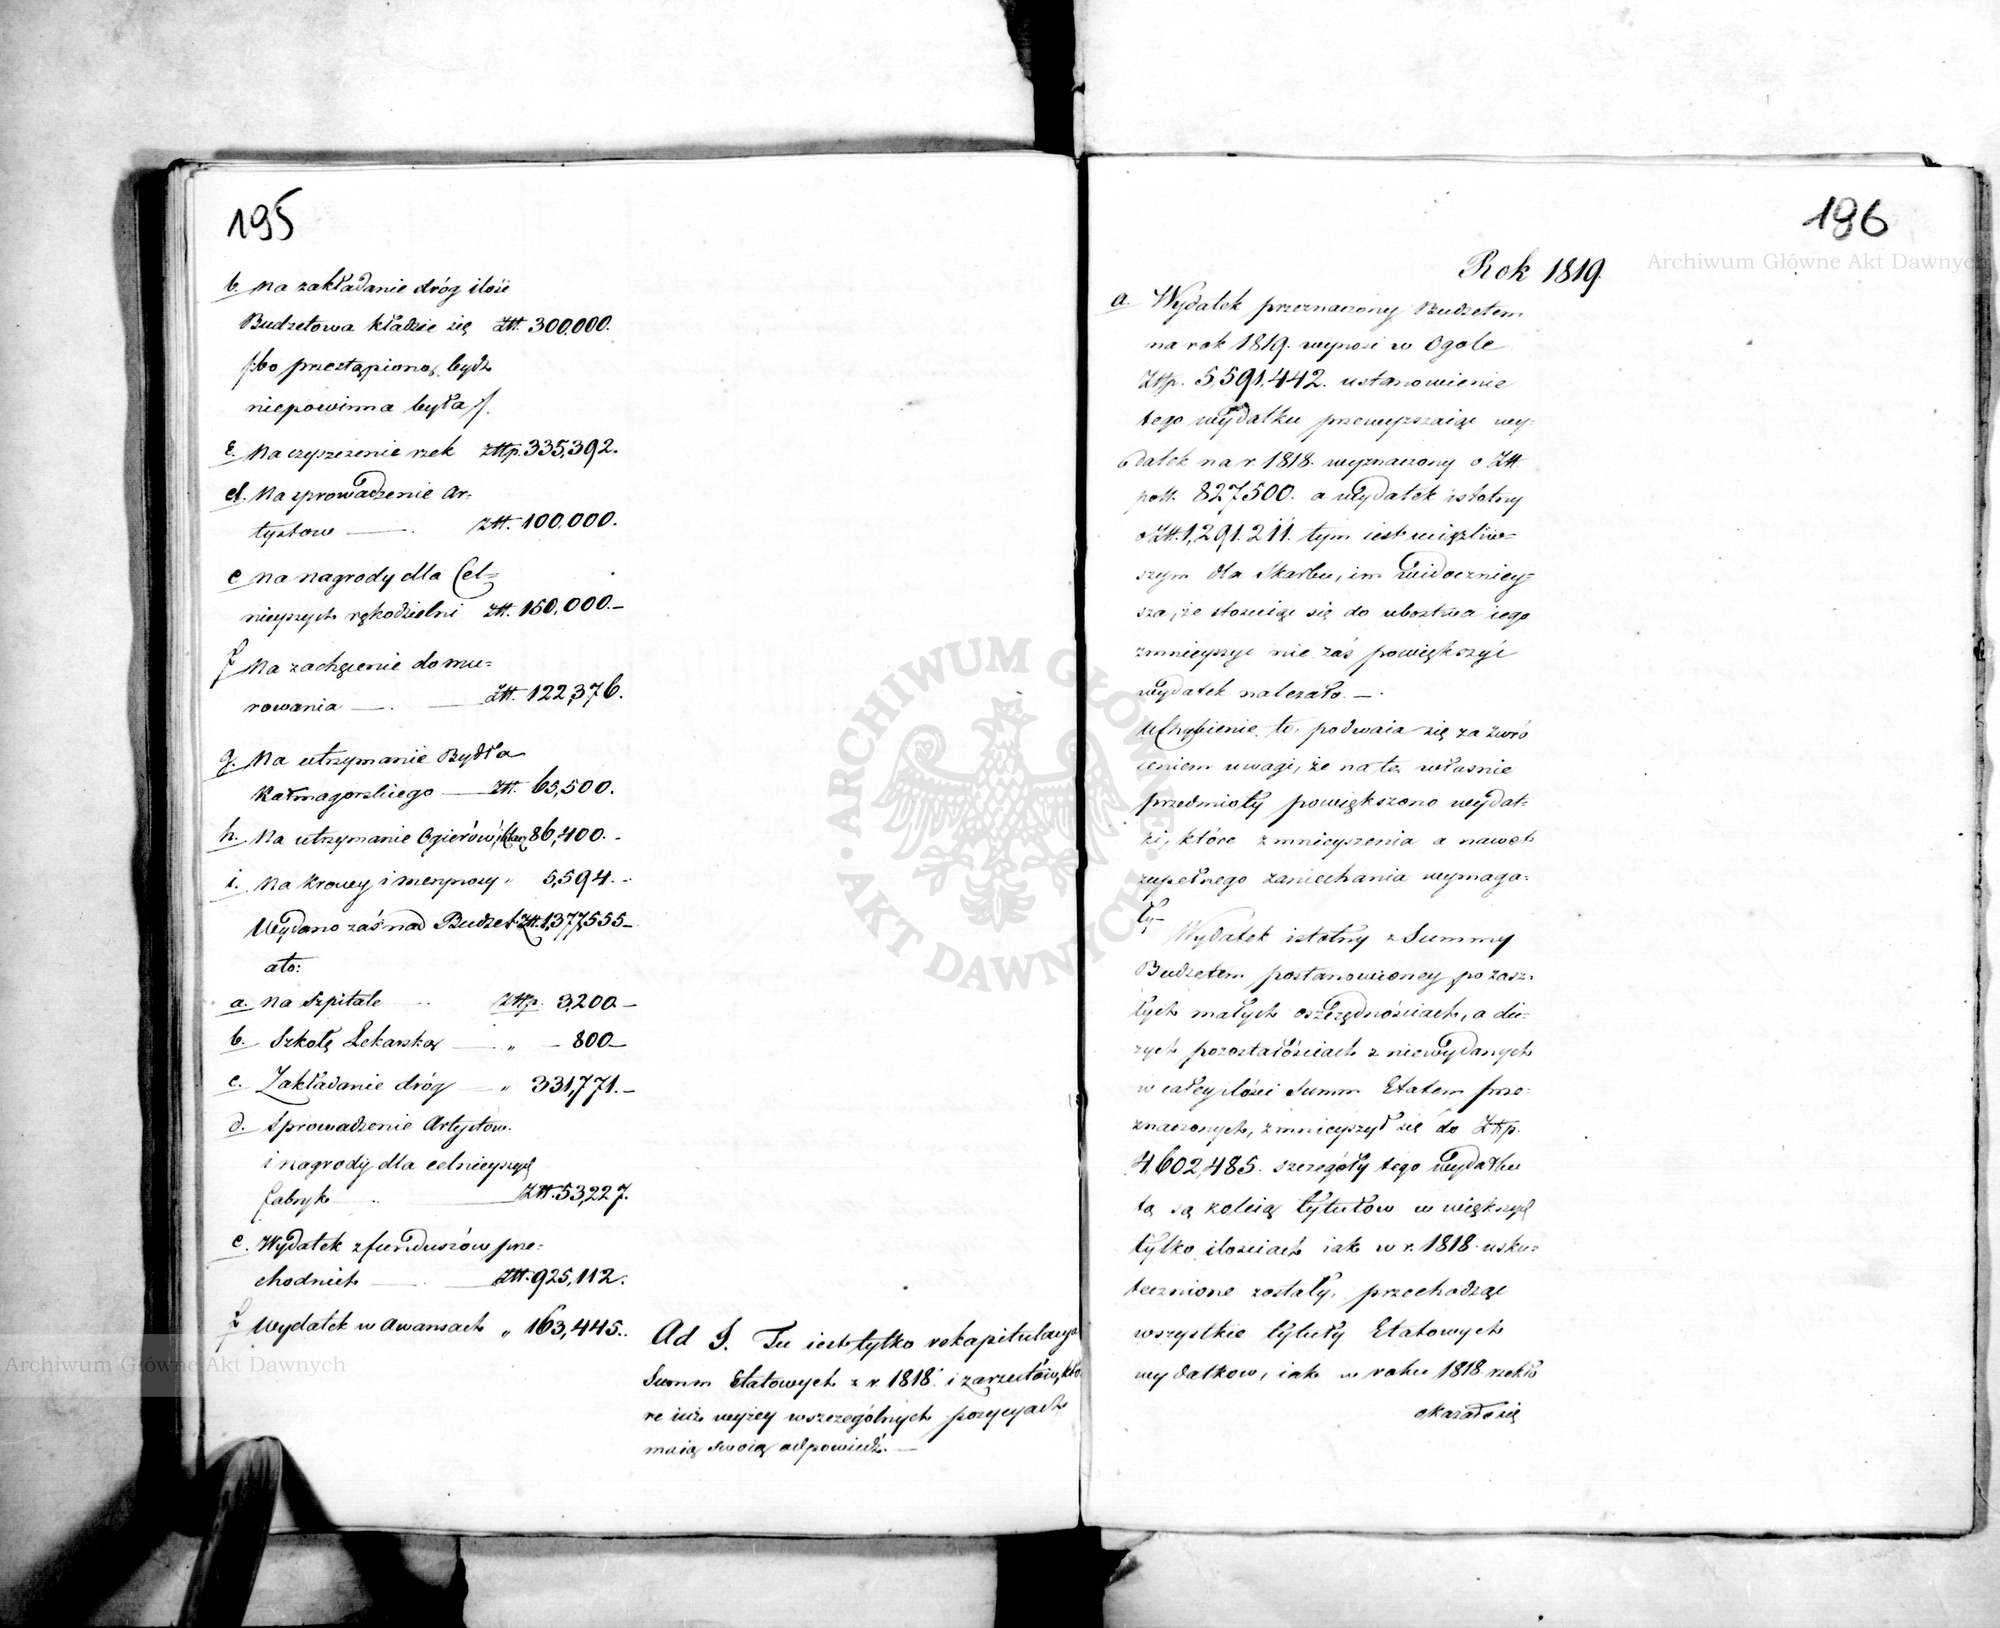 195
b. Na zakładanie dróg ilość
Budżetowa kładzie się Złt. 300,000.
/:bo przestąpioną bydź
niepowinna była :/.
c. Na czyszczenie rzek Złtp. 335,392.
d. Na sprowadzenie Ar=
tystow — Złt. 100,000.
e Na nagrody dla Cel=
nieyszych rękodzielni Złt. 150,000.—
f Na zachęcenie do mu=
rowania — Złt. 122,376.
g. Na utrzymanie Bydła
Kałmagorskiego — Złt. 65,500.
h. Na utrzymanie Ogierów, 86,400.-
i. Na krowy i merynosy „ 5,594.-
Wydano zaś nad Budżet Złt. 1,377,555—
ato:
a. Na Szpitale Złtp. 3,200—
b. Szkołę Lekarską — „ — 800—
c. Zakładanie dróg — „ 331,771.—
d. Sprowadzenie Artystów.
i nagrody dla celnieyszych
fabryk Złt. 53,227.
e. Wydatek z funduszów prze=
chodnich — Złt. 925,112.
f Wydatek w Awansach „ 163,445..
Ad J. Tu iest tylko rekapitulacya
Summ Etatowych z r. 1818. i zarzutów, któ
re iuż wyżey w szczególnych pozycyach
maią swoią odpowiedź.—
196
Rok 1819.
a. Wydatek przeznaczony Budżetem
na rok 1819. wynosi w Ogole
Złtp. 5,591,442. ustanowienie
tego wydatku przewyższaiąc wy=
datek na r. 1818. wyznaczony o Złt.
poll. 827,500. a wydatek istotny
o Złt. 1,291,211. tym iest uciążliw=
szym dla Skarbu, im widoczniey=
sza, że stosuiąc się do ubostwa iego
zmnieyszyć nie zaś powiększyć
wydatek należało.—.
Uchybienie to, podwaia się za zwró
ceniem uwagi, że na te własnie
przedmioty powiększono wydat=
ki, które zmnieyszenia a nawet
zupełnego zaniechania wymaga=
ły—
Wydatek istotny z Summy
Budżetem postanowioney po zasz=
łych małych oszczędnościach, a du=
żych pozostałościach z niewydanych
w całey ilości Summ Etatem prze=
znaczonych, zmnieyszył się do Złtp.
4,602,485. szczegóły tego wydatku
tą są koleią tytułów w większych
tylko ilosciach iak w r. 1818. usku=
tecznione zostały, przechodząc
wszystkie tytuły Etatowych
wydatkow, iak w roku 1818 rzekło
okazało się
Archiwum Główne Akt Dawnych
Archiwum Główne Akt Dawnych
ARCHIWUM GŁÓWNE
AKT DAWNYCH